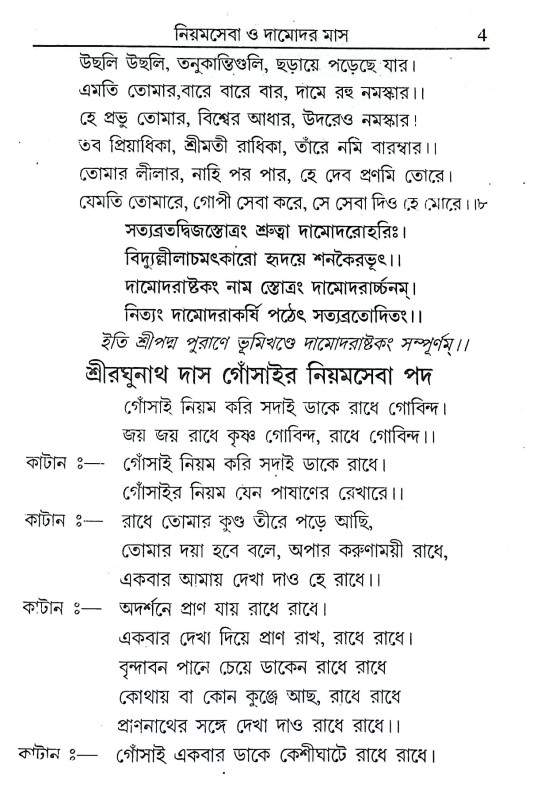 নিয়মসেবা ও দামোদর মাস 4
উছলি উছলি, তনুকান্তিগুলি, ছড়ায়ে পড়েছে যার।
এমতি তোমার,বারে বারে বার, দামে রহু নমস্কার।।
হে প্রভু তোমার, বিশ্বের আধার, উদরেও নমস্কার!
তব প্রিয়াধিকা, শ্রীমতী রাধিকা, তাঁরে নমি বারম্বার।।
তোমার লীলার, নাহি পর পার, হে দেব প্রণমি তোরে।
যেমতি তোমারে, গোপী সেবা করে, সে সেবা দিও হে মোরে।।৮
সত্যব্রতদ্বিজস্তোত্রং শ্রুত্বা দামোদরোহরিঃ।
বিদ্যুল্লীলাচমৎকারো হৃদয়ে শনকৈরভূৎ।।
দামোদরাষ্টকং নাম স্তোত্রং দামোদরার্চ্চনম্।
নিত্যং দামোদরাকর্ষি পঠেৎ সত্যব্রতোদিতং।।
ইতি শ্রীপদ্ম পুরাণে ভূমিখণ্ডে দামোদরাষ্টকং সম্পূর্ণম্।।
শ্রীরঘুনাথ দাস গোঁসাইর নিয়মসেবা পদ
গোঁসাই নিয়ম করি সদাই ডাকে রাধে গোবিন্দ।
জয় জয় রাধে কৃষ্ণ গোবিন্দ, রাধে গোবিন্দ।।
কাটান ঃ— গোঁসাই নিয়ম করি সদাই ডাকে রাধে।
গোঁসাইর নিয়ম যেন পাষাণের রেখারে।।
কাটান ঃ— রাধে তোমার কুণ্ড তীরে পড়ে আছি,
তোমার দয়া হবে বলে, অপার করুণাময়ী রাধে,
একবার আমায় দেখা দাও হে রাধে।।
কাটান ঃ— অদর্শনে প্রাণ যায় রাধে রাধে।
একবার দেখা দিয়ে প্রাণ রাখ, রাধে রাধে।
বৃন্দাবন পানে চেয়ে ডাকেন রাধে রাধে
কোথায় বা কোন কুঞ্জে আছ, রাধে রাধে
প্রাণনাথের সঙ্গে দেখা দাও রাধে রাধে।।
কাটান ঃ— গোঁসাই একবার ডাকে কেশীঘাটে রাধে রাধে।